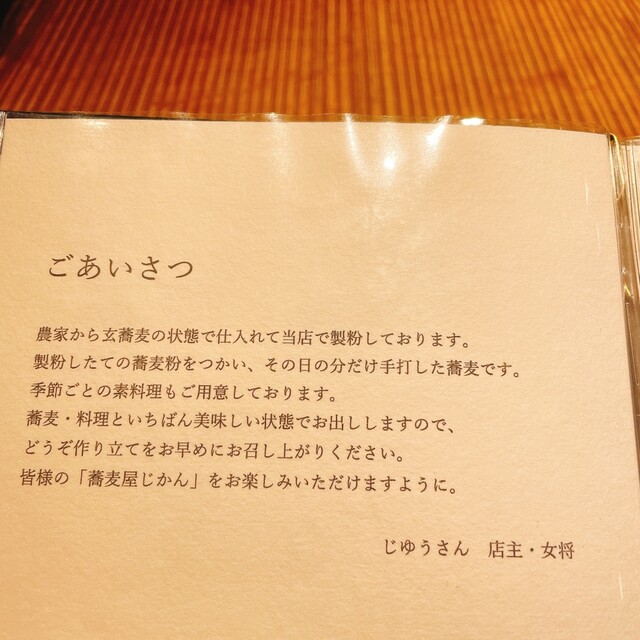 ごあいさつ
農家から玄蕎麦の状態で仕入れて当店で製粉しております。
製粉したての蕎麦粉をつかい、その日の分だけ手打した蕎麦です。
季節ごとの素料理もご用意しております。
蕎麦・料理といちばん美味しい状態でお出ししますので、
どうぞ作り立てをお早めにお召し上がりください。
皆様の「蕎麦屋じかん」をお楽しみいただけますように。
じゆうさん　店主・女将